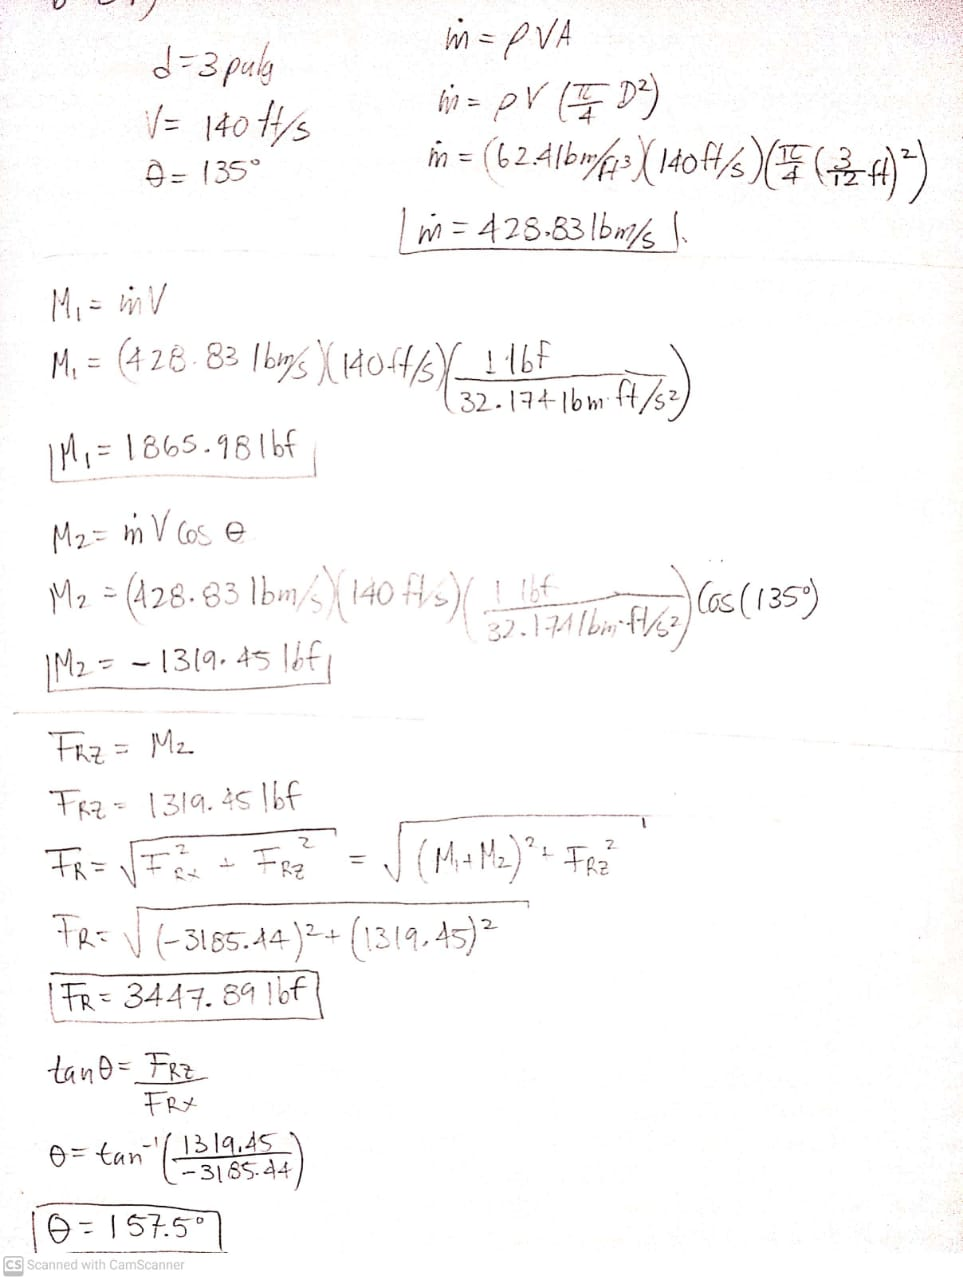 d=3 pulg
V= 140 ft/s
θ= 135°
ṁ = ρVA
ṁ = ρV (π/4 D²)
ṁ = (62.4 lbm/ft³)(140 ft/s)(π/4 (3/12 ft)²)
ṁ = 428.83 lbm/s
M₁ = ṁV
M₁ = (428.83 lbm/s)(140 ft/s)(1 lbf / 32.174 lbm·ft/s²)
M₁ = 1865.98 lbf
M₂ = ṁ V Cos θ
M₂ = (428.83 lbm/s)(140 ft/s)(1 lbf / 32.174 lbm·ft/s²) Cos(135°)
M₂ = - 1319.45 lbf
FRZ = M₂
FRZ = 1319.45 lbf
FR = √(FRx² + FRZ²) = √((M₁+M₂)² + FRZ²)
FR = √((-3185.44)² + (1319.45)²)
FR = 3447.89 lbf
tanθ = FRZ / FRX
θ = tan⁻¹(1319.45 / -3185.44)
θ = 157.5°
CS Scanned with CamScanner